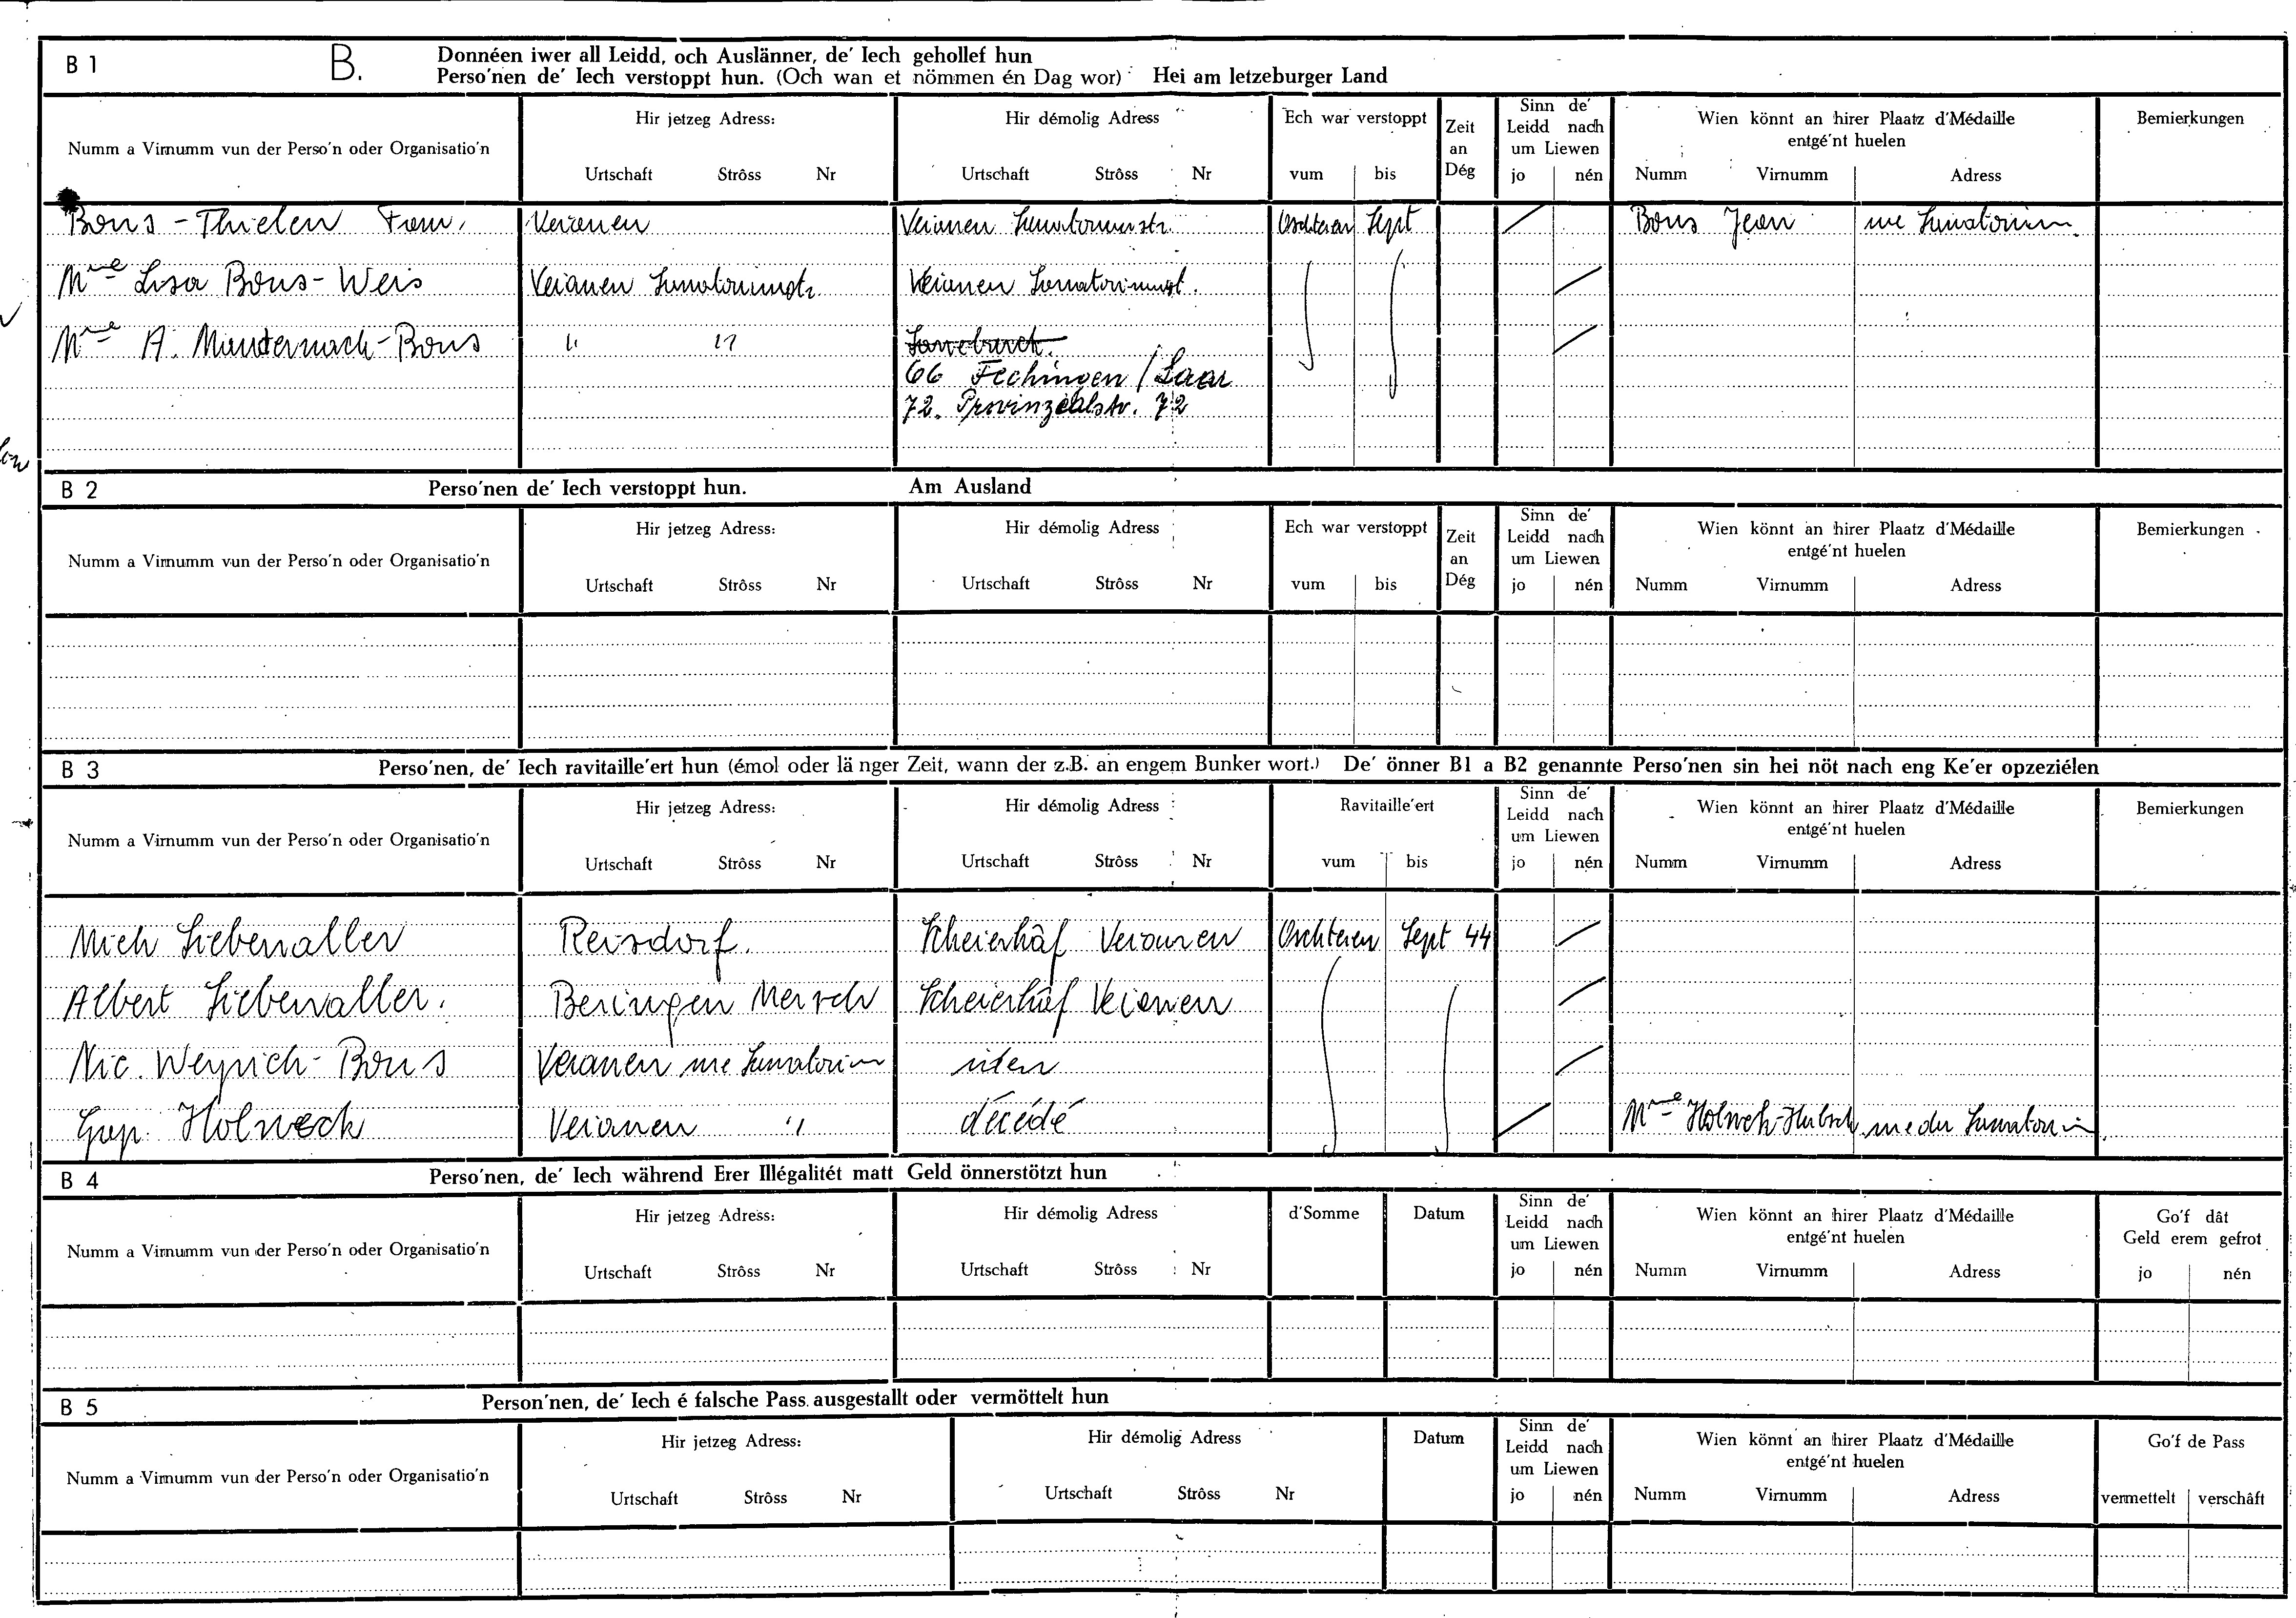 B 1 B. Donnéen iwer all Leidd, och Auslänner, de' Iech gehollef hun
Perso'nen de' Iech verstoppt hun. (Och wan et nömmen én Dag wor) Hei am letzeburger Land
Numm a Virnumm vun der Perso'n oder Organisatio'n
Hir jetzeg Adress:
Urtschaft Strôss Nr
Hir démolig Adress
Urtschaft Strôss Nr
Ech war verstoppt
vum bis
Zeit
an
Dég
Sinn de'
Leidd nach
um Liewen
jo nén
Wien könnt an hirer Plaatz d'Médaille
entgé'nt huelen
Numm Virnumm Adress
Bemierkungen
Bous - Thielen Fam. Veianen Veianen Sanatoriumstr. Oschteren Sept Bous Jean rue Sanatorium
Mme Lisa Bous-Weis Veianen Sanatoriumstr Veianen Sanatoriumst.
Mme A. Mandernach-Bous " "
66 Fechingen / Saar
72. Provinzialstr. 72
B 2 Perso'nen de' Iech verstoppt hun. Am Ausland
Numm a Virnumm vun der Perso'n oder Organisatio'n
Hir jetzeg Adress:
Urtschaft Strôss Nr
Hir démolig Adress
Urtschaft Strôss Nr
Ech war verstoppt
vum bis
Zeit
an
Dég
Sinn de'
Leidd nach
um Liewen
jo nén
Wien könnt an hirer Plaatz d'Médaille
entgé'nt huelen
Numm Virnumm Adress
Bemierkungen
B 3 Perso'nen, de' Iech ravitaille'ert hun (émol oder länger Zeit, wann der z.B. an engem Bunker wort.) De' önner B1 a B2 genannte Perso'nen sin hei nöt nach eng Ke'er opzeziélen
Numm a Virnumm vun der Perso'n oder Organisatio'n
Hir jetzeg Adress:
Urtschaft Strôss Nr
Hir démolig Adress
Urtschaft Strôss Nr
Ravitaille'ert
vum bis
Sinn de'
Leidd nach
um Liewen
jo nén
Wien könnt an hirer Plaatz d'Médaille
entgé'nt huelen
Numm Virnumm Adress
Bemierkungen
Mich Siebenaller Reisdorf. Scheierhâf Veianen Oschteren Sept 44
Albert Siebenaller. Beringen Mersch Scheierhâf Veianen
Nic. Weyrich-Bous Veianen rue Sanatorium
Holweck Veianen " décédé Mme Holweck-Hubsch rue du Sanatorium
B 4 Perso'nen, de' Iech während Erer Illégalitét matt Geld önnerstötzt hun
Numm a Virnumm vun der Perso'n oder Organisatio'n
Hir jetzeg Adress:
Urtschaft Strôss Nr
Hir démolig Adress
Urtschaft Strôss Nr
d'Somme
Datum
Sinn de'
Leidd nach
um Liewen
jo nén
Wien könnt an hirer Plaatz d'Médaille
entgé'nt huelen
Numm Virnumm Adress
Go'f dât
Geld erem gefrot
jo nén
B 5 Person'nen, de' Iech é falsche Pass ausgestallt oder vermöttelt hun
Numm a Virnumm vun der Perso'n oder Organisatio'n
Hir jetzeg Adress:
Urtschaft Strôss Nr
Hir démolig Adress
Urtschaft Strôss Nr
Datum
Sinn de'
Leidd nach
um Liewen
jo nén
Wien könnt an hirer Plaatz d'Médaille
entgé'nt huelen
Numm Virnumm Adress
Go'f de Pass
vermettelt verschâft